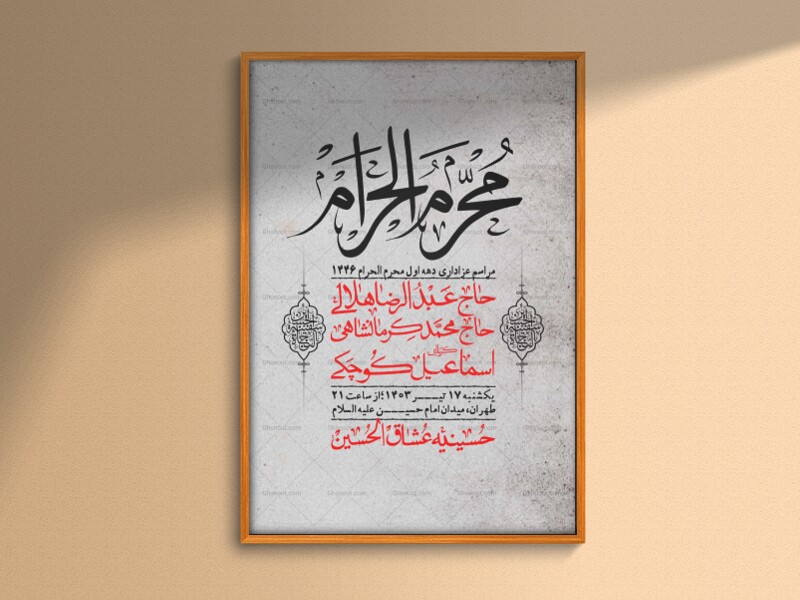 محرم الحرام
مراسم عزاداری دهه اول محرم الحرام ۱۴۴۶
حاج عبدالرضا هلالی
حاج محمد کرمانشاهی
کربلایی
اسماعیل کوچکے
یکشنبه ۱۷ تیـــر ۱۴۰۳؛ از ساعت ۲۱
طهران، میدان امام حسیـــن علیه السلام
حسینیه عشاق الحسین
Ghonoot.com